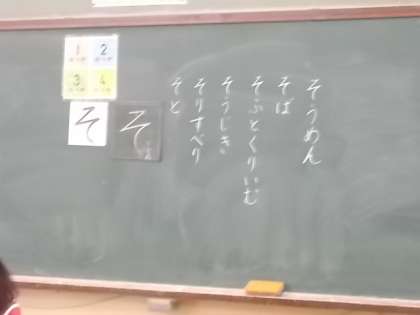 そうめん
そば
そふとくりいむ
そうじき
そりすべり
そと
そ
そ
1 2
3 4